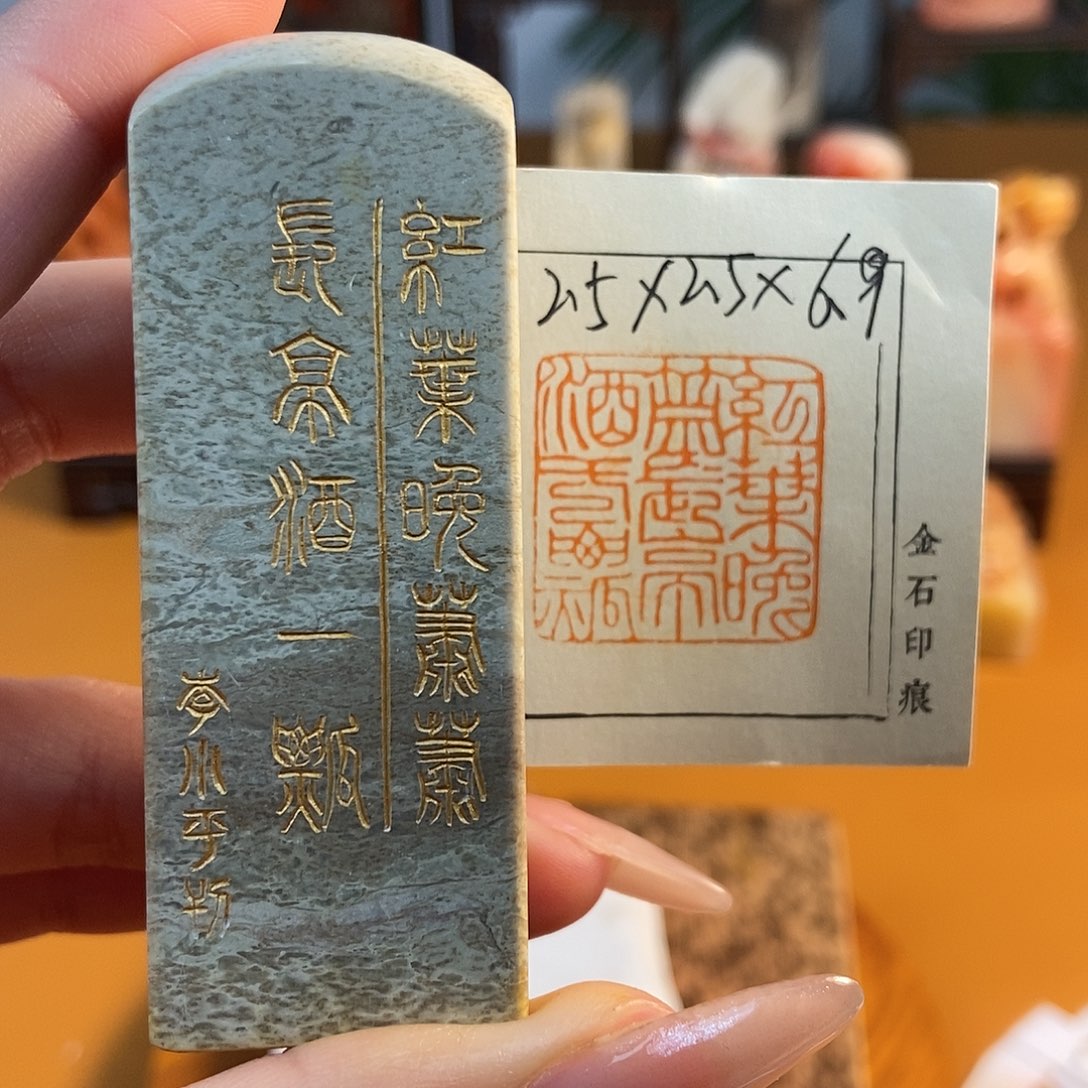 紅葉晚蕭蕭
長亭酒一瓢
小平
25×25×69
紅葉晚
蕭長亭
酒一瓢
金石印痕